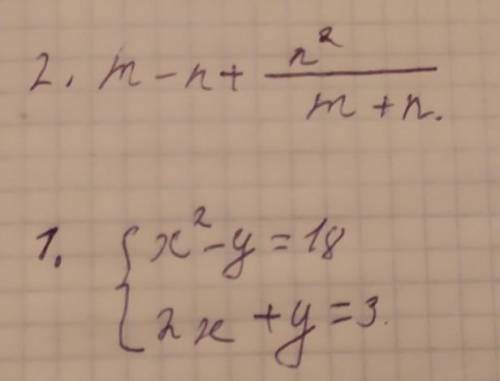 2. m - n + n² / m + n.
1. { x² - y = 18
2x + y = 3.